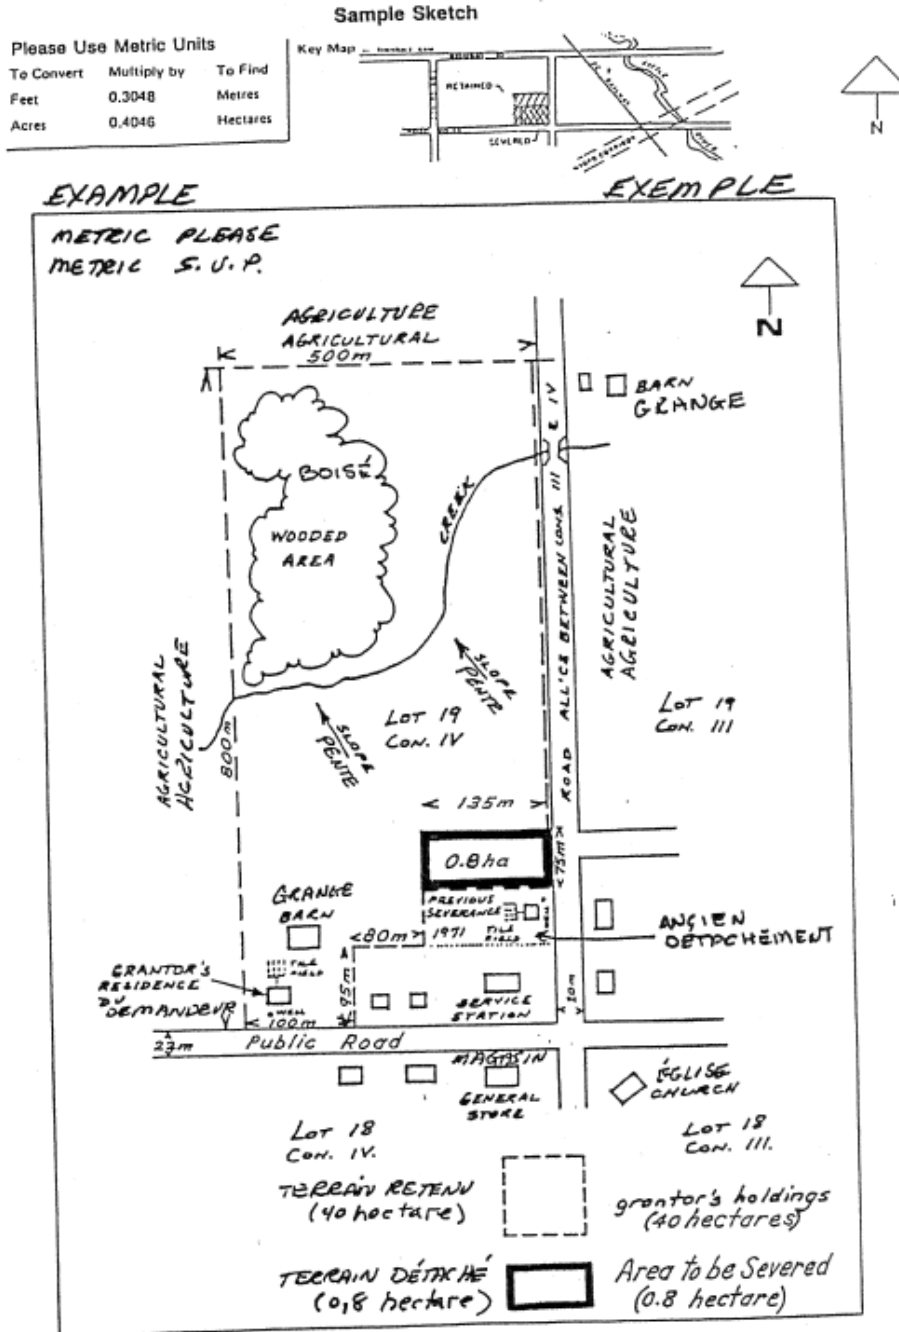 Sample Sketch
Please Use Metric Units
To Convert Multiply by To Find
Feet 0.3048 Metres
Acres 0.4046 Hectares
Key Map
RETAINED
SEVERED
N
EXAMPLE
EXEMPLE
METRIC PLEASE
METRIC S.V.P.
N
AGRICULTURE
AGRICULTURAL
500m
BARN
GRANGE
BOISÉ
WOODED
AREA
CREEK
ROAD ALL'CE BETWEEN CONS III & IV
AGRICULTURAL
AGRICULTURE
SLOPE
PENTE
SLOPE
PENTE
LOT 19
CON. IV
LOT 19
CON. III
AGRICULTURAL
AGRICULTURE
800m
135m
0.8ha
75m
GRANGE
BARN
PREVIOUS
SEVERANCE
1971
TILE
FIELD
WELL
ANÇIEN
DETACHÉMENT
80m
95m
TILE
FIELD
GRANTOR'S
RESIDENCE
DU
DEMANDEUR
WELL
100m
SERVICE
STATION
20m
23m
Public Road
MAGASIN
GENERAL
STORE
ÉGLISE
CHURCH
LOT 18
CON. IV.
LOT 18
CON. III.
TERRAIN RETENU
(40 hectare)
grantor's holdings
(40 hectares)
TERRAIN DÉTACHÉ
(0,8 hectare)
Area to be Severed
(0.8 hectare)